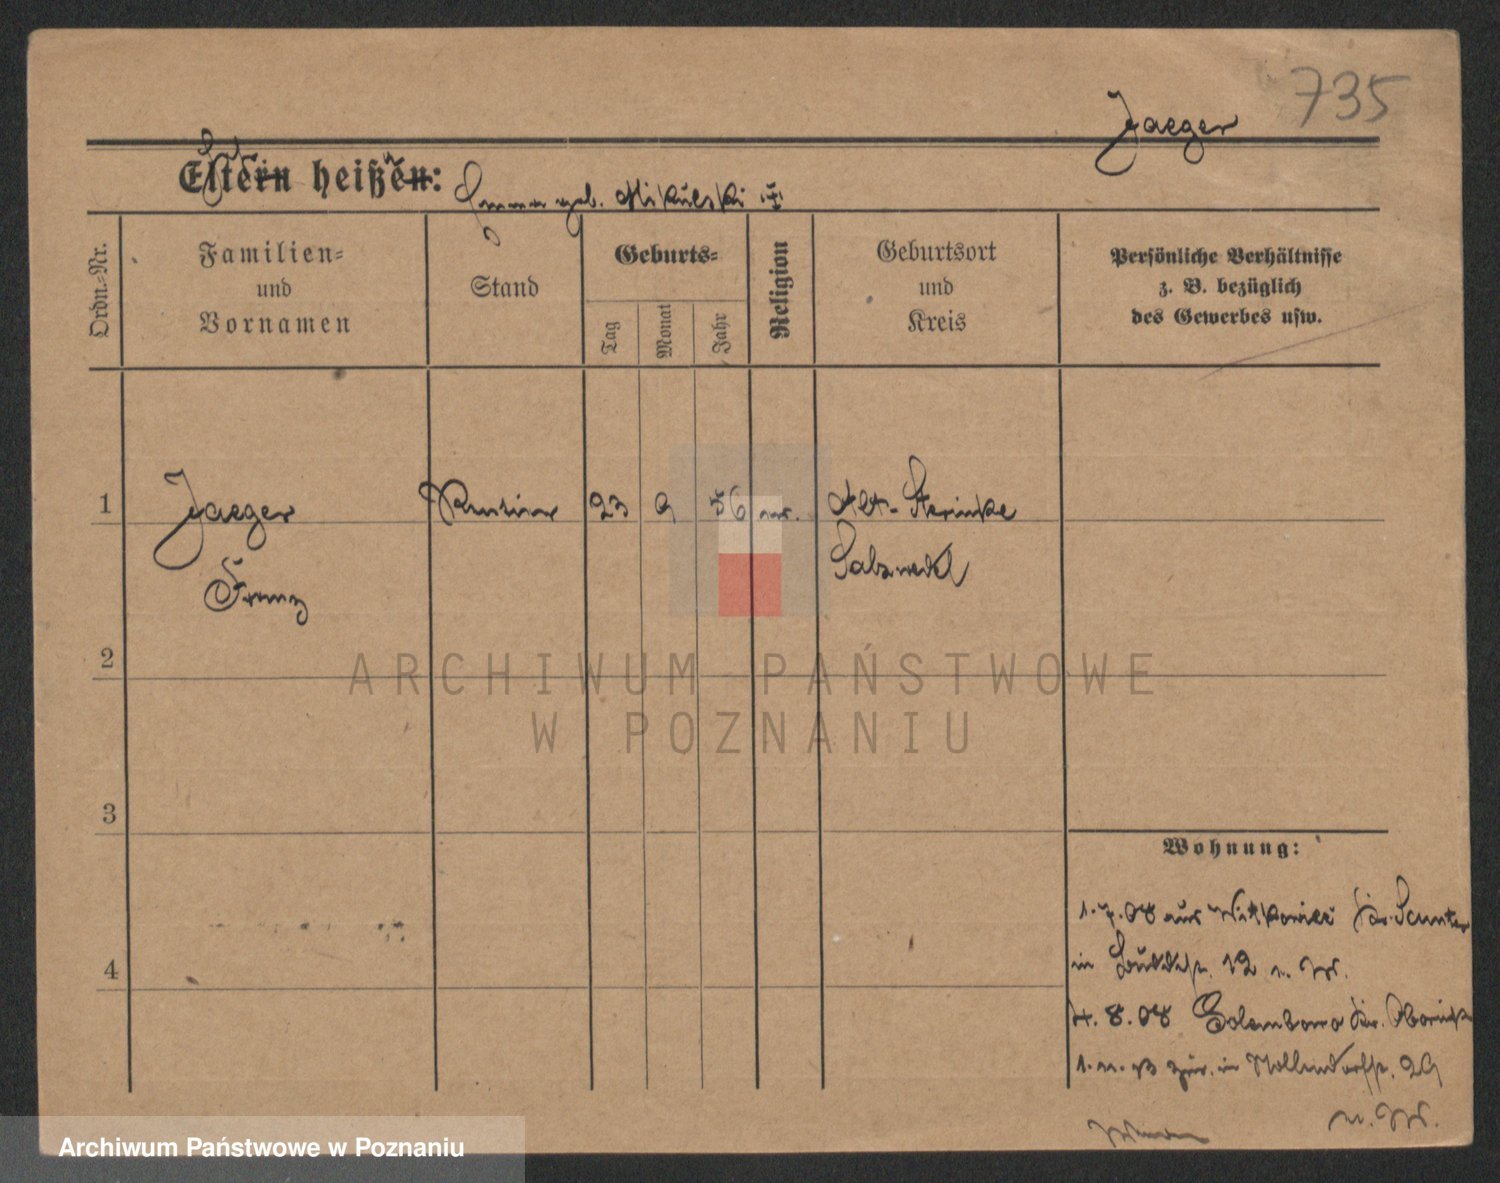 735
Jaeger
Eltern heißen:
geb. Mikulski
Ordn.-Nr.
Familien-
und
Vornamen
Stand
Geburts-
Tag
Monat
Jahr
Religion
Geburtsort
und
Kreis
Persönliche Verhältnisse
z. B. bezüglich
des Gewerbes usw.
1
Jaeger
Rentier
23
9
56
Alt-
Salzwedel
Franz
2
ARCHIWUM PAŃSTWOWE
W POZNANIU
3
Wohnung:
1.7.08 aus Witkowice Kr. Samter
in 12
4
4.8.08 Golembowo Kr. Obornik
1.11. zur. in Nollendorfstr. 29
Archiwum Państwowe w Poznaniu